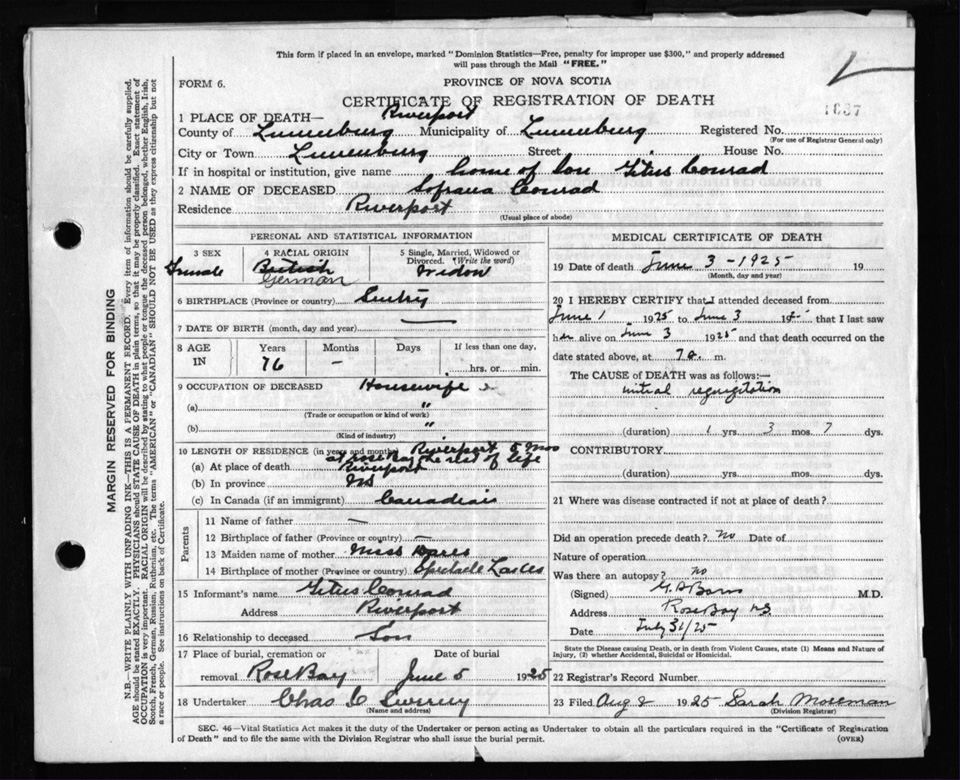 This form if placed in an envelope, marked "Dominion Statistics—Free, penalty for improper use $300," and properly addressed
will pass through the Mail "FREE."
FORM 6.
PROVINCE OF NOVA SCOTIA
CERTIFICATE OF REGISTRATION OF DEATH
1887
1 PLACE OF DEATH— Riverport
County of Lunenburg Municipality of Lunenburg Registered No.
(For use of Registrar General only)
City or Town Lunenburg Street House No.
If in hospital or institution, give name home of Son Titus Conrad
2 NAME OF DECEASED Sofrana Conrad
Residence Riverport
(Usual place of abode)
PERSONAL AND STATISTICAL INFORMATION
3 SEX Female
4 RACIAL ORIGIN British German
5 Single, Married, Widowed or Divorced. (Write the word) Widow
6 BIRTHPLACE (Province or country)
7 DATE OF BIRTH (month, day and year) —
8 AGE IN Years 76 Months — Days If less than one day, hrs. or min.
9 OCCUPATION OF DECEASED Housewife
(a) "
(Trade or occupation or kind of work)
(b) "
(Kind of industry)
10 LENGTH OF RESIDENCE (in years and months) Riverport 5 mos
at Rose Bay the rest of life
(a) At place of death Riverport
(b) In province NS
(c) In Canada (if an immigrant) Canadian
Parents
11 Name of father —
12 Birthplace of father (Province or country) —
13 Maiden name of mother Miss
14 Birthplace of mother (Province or country)
15 Informant's name Titus Conrad
Address Riverport
16 Relationship to deceased Son
17 Place of burial, cremation or removal Rose Bay
Date of burial June 5 1925
18 Undertaker Chas
(Name and address)
MEDICAL CERTIFICATE OF DEATH
19 Date of death June 3 - 1925 19
(Month, day and year)
20 I HEREBY CERTIFY that I attended deceased from
June 1 1925 to June 3 192 that I last saw
her alive on June 3 1925 and that death occurred on the
date stated above, at 7 a. m.
The CAUSE of DEATH was as follows:—
mitral regurgitation
(duration) 1 yrs. 3 mos. 7 dys.
CONTRIBUTORY
(duration) yrs. mos. dys.
21 Where was disease contracted if not at place of death?
Did an operation precede death? no Date of
Nature of operation
Was there an autopsy? no
(Signed) M.D.
Address Rose Bay NS
Date July 31/25
State the Disease causing Death, or in death from Violent Causes, state (1) Means and Nature of
Injury, (2) whether Accidental, Suicidal or Homicidal.
22 Registrar's Record Number
23 Filed Aug 2 1925 Sarah
(Division Registrar)
SEC. 46—Vital Statistics Act makes it the duty of the Undertaker or person acting as Undertaker to obtain all the particulars required in the "Certificate of Registration
of Death" and to file the same with the Division Registrar who shall issue the burial permit. (OVER)
MARGIN RESERVED FOR BINDING
N.B.—WRITE PLAINLY WITH UNFADING INK—THIS IS A PERMANENT RECORD. Every item of information should be carefully supplied.
AGE should be stated EXACTLY. PHYSICIANS should STATE CAUSE OF DEATH in plain terms, so that it may be properly classified. Exact statement of
OCCUPATION is very important. RACIAL ORIGIN will be described by stating to what people or tongue the deceased person belonged, whether English, Irish,
Scotch, French, German, Russian, Ruthenian, etc. The terms "AMERICAN" or "CANADIAN" SHOULD NOT BE USED as they express citizenship but not
a race or people. See instructions on back of Certificate.